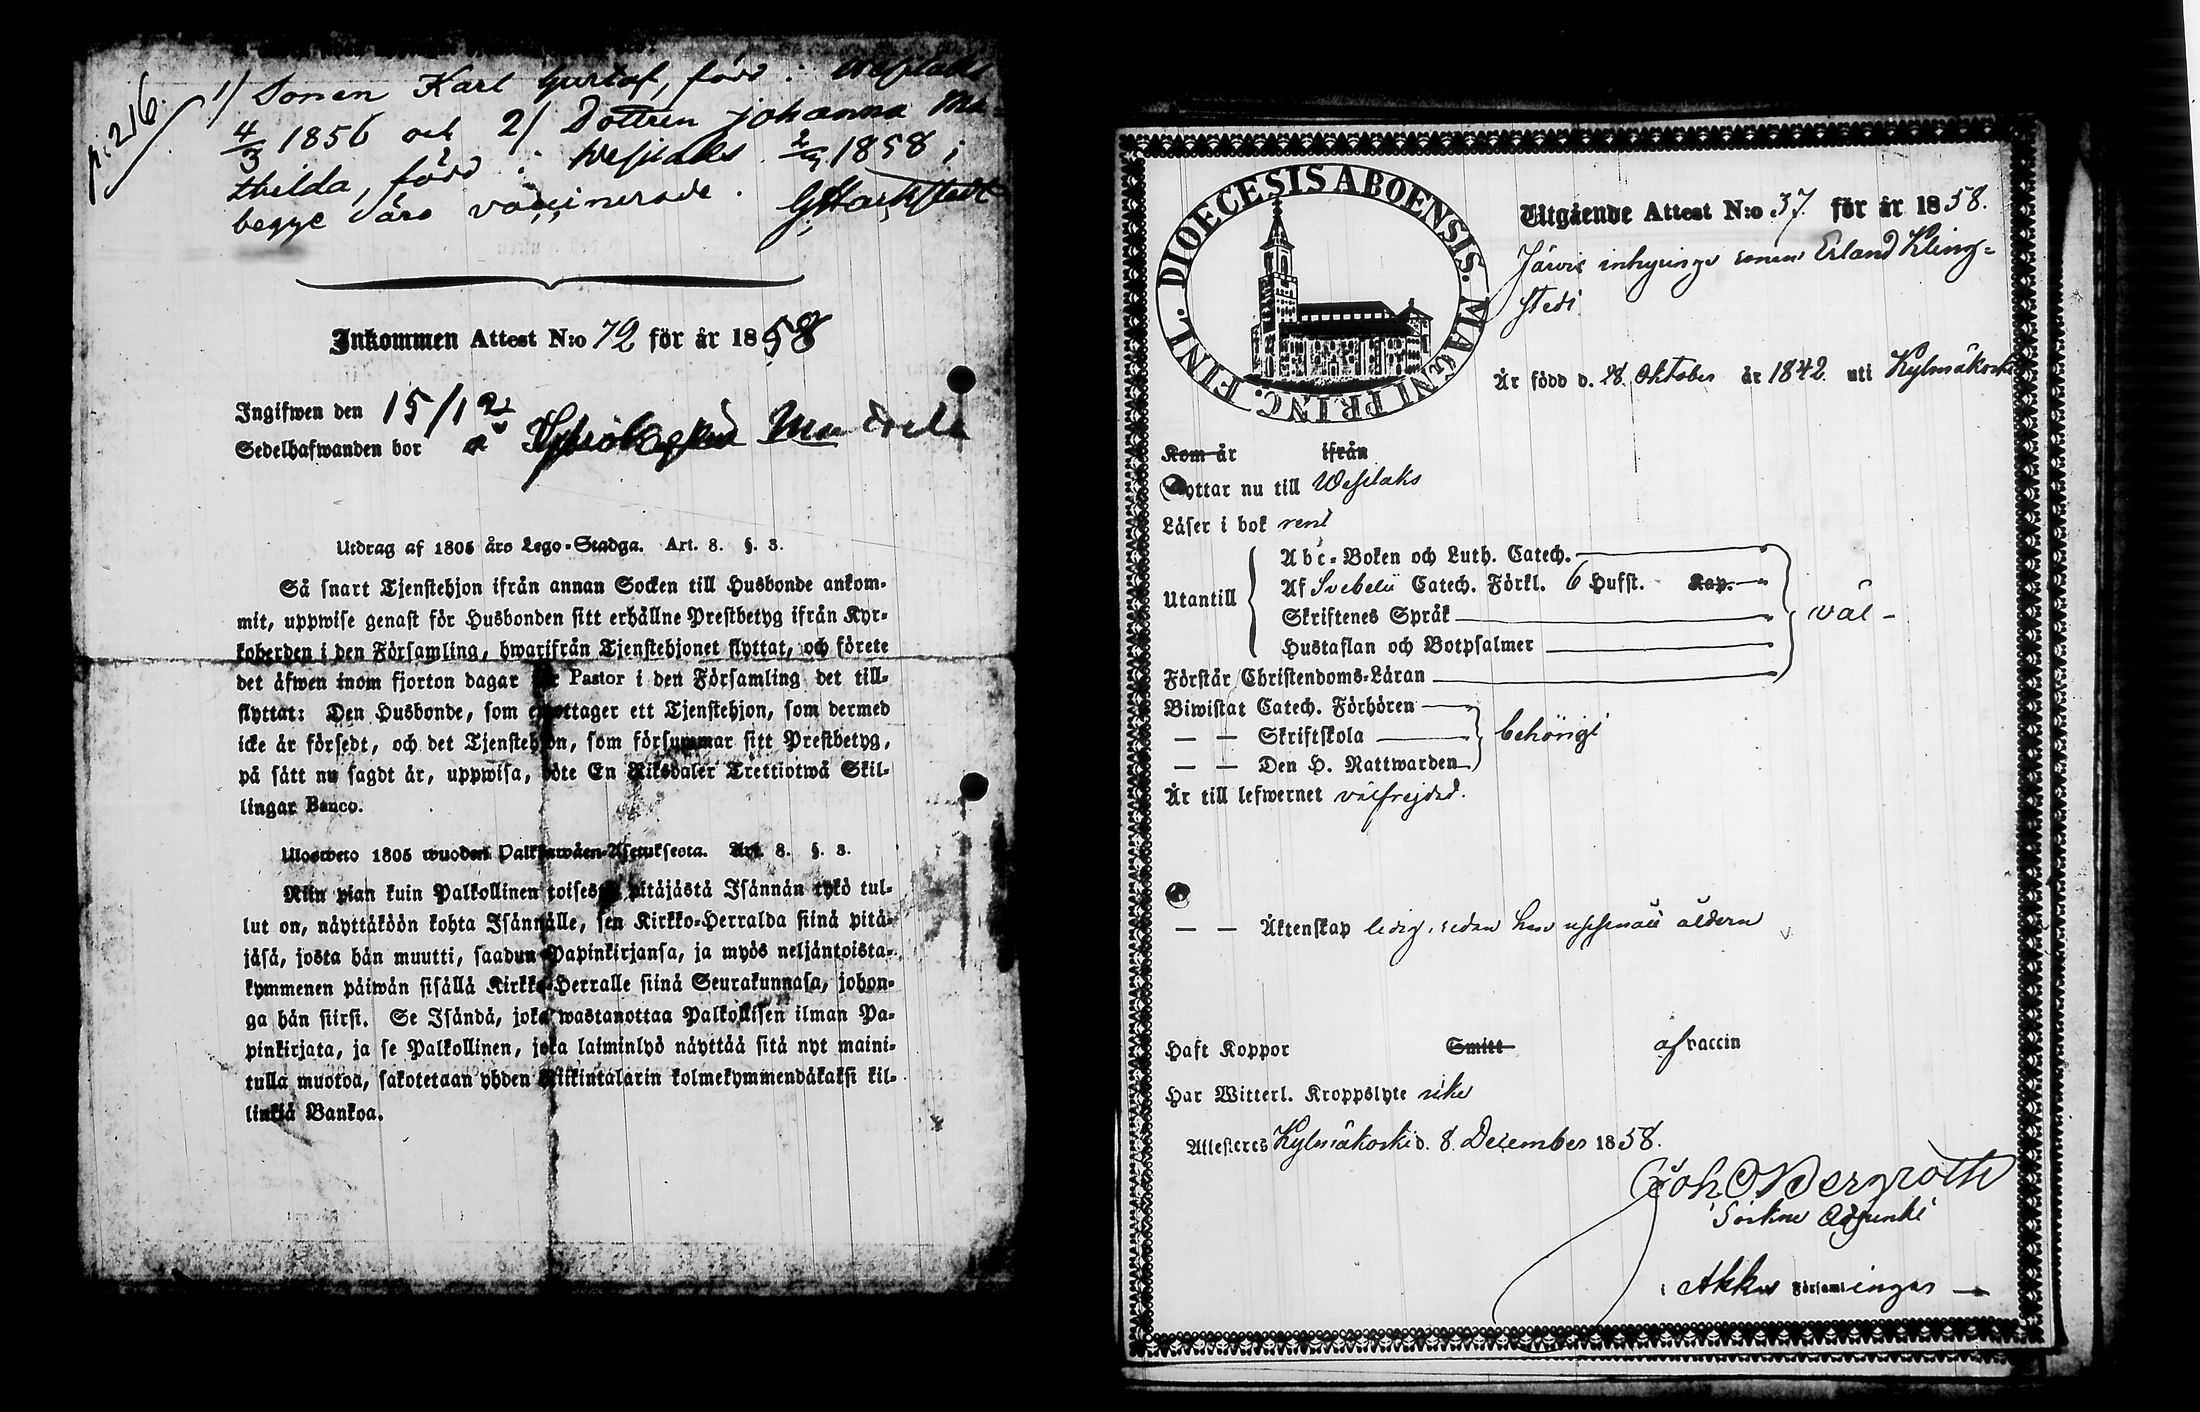 p. 216.
1) Sonen Karl Gustaf, född i Wesilaks
4/3 1856 och 2) Dottren Johanna Ma=
thilda, född i Wesilaks 2/9 1858;
begge äro vaccinerade. G Hackstedt
Inkommen Attest N:o 72 för år 1858
Ingifwen den 15/12
Sedelhafwanden bor å
Utdrag af 1805 års Lego-Stadga. Art. 8. §. 3.
Så snart Tjenstehjon ifrån annan Socken till Husbonde ankom-
mit, uppwise genast för Husbonden sitt erhållne Prestbetyg ifrån Kyr-
koherden i den Församling, hwarifrån Tjenstehjonet flyttat, och förete
det äfwen inom fjorton dagar för Pastor i den Församling det till-
flyttat: Den Husbonde, som emottager ett Tjenstehjon, som dermed
icke är försedt, och det Tjenstehjon, som försummar sitt Prestbetyg,
på sätt nu sagdt är, uppwisa, böte En Riksdaler Trettiotwå Skil-
lingar Banco.
Ulosweto 1805 wuoden Palkkawäen-Asetuksesta. Art. 8. §. 3.
Niin pian kuin Palkollinen toisesta pitäjästä Isännän tykö tul-
lut on, näyttäköön kohta Isännälle, sen Kirkko-Herralda siinä pitä-
jäsä, josta hän muutti, saadun Papinkirjansa, ja myös neljäntoista-
kymmenen päiwän sisällä Kirkko-Herralle siinä Seurakunnasa, johon-
ga hän siirsi. Se Isändä, joka wastanottaa Palkollisen ilman Pa-
pinkirjata, ja se Palkollinen, joka laiminlyö näyttää sitä nyt maini-
tulla muotoa, sakotetaan yhden Riikintalarin kolmekymmendäkaksi kil-
linkiä Bankoa.
FINL. DIOECESIS ABOENSIS. MAGNI PRINC.
Utgående Attest N:o 37. för år 1858.
Järvis inhysings sonen Erland Kling=
stedt
Är född d. 28. Oktober år 1842 uti Kylmäkoski
Kom år ifrån
Flyttar nu till Wesilaks
Läser i bok rent
Abc-Boken och Luth. Catech.
Utantill Af Svebelii Catech. Förkl. 6 Hufst. Kap.
Skriftenes Språk väl
Hustaflan och Botpsalmer
Förstår Christendoms-Läran
Biwistat Catech. Förhören
— — Skriftskola behörigt
— — Den H. Nattwarden
Är till lefwernet välfrejdad.
— — Äktenskap ledig, sedan han uppnått åldern
Haft Koppor Smitt af vaccin
Har Witterl. Kroppslyte icke
Attesteres Kylmäkoski d. 8 December 1858.
Joh O Bergroth
Sockne Adjunkt
i Akkas Församlingar